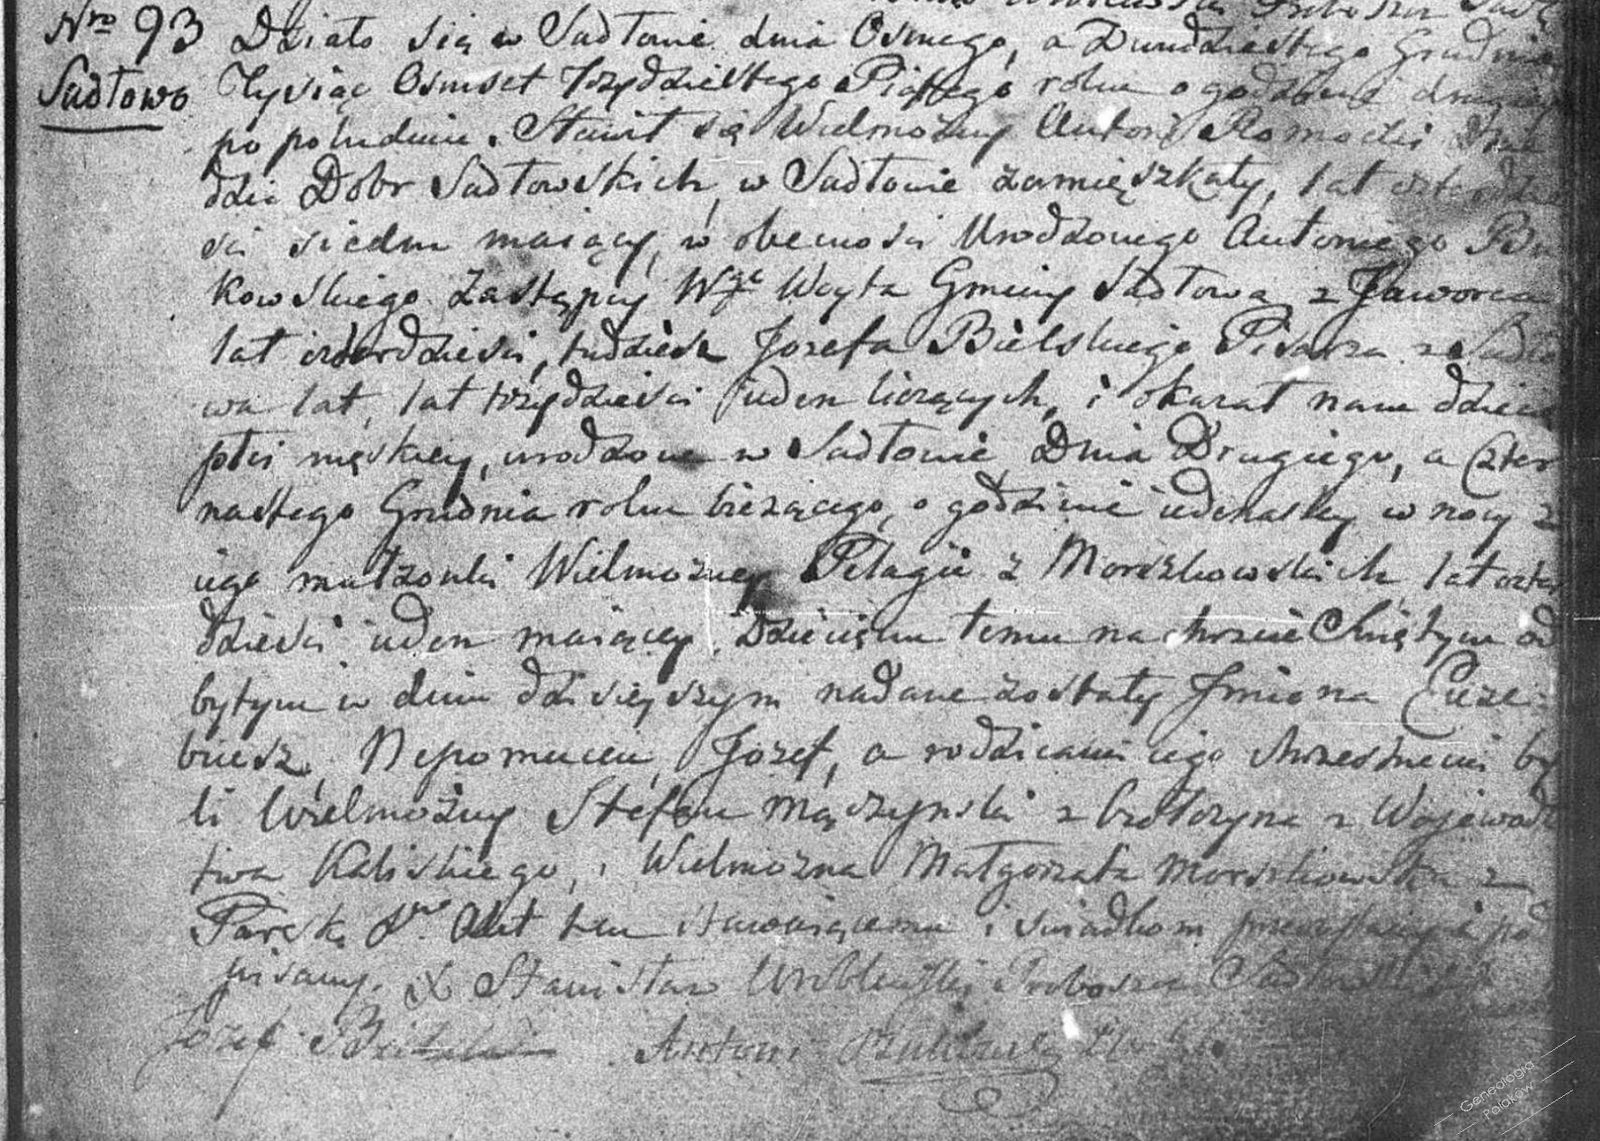 Nro 93 Działo się w Sadłowie dnia Osmego, a Dwudziestego Grudnia
Sadłowo Tysiąc Osmset Trzydziestego Piątego roku o godzinie drugiey
po południu. Stawił się Wielmożny Antoni Romocki
dzic Dobr Sadłowskich, w Sadłowie zamięszkały, lat czterdzie
sci siedm maiący, w obecnosci Urodzonego Antoniego
kowskiego Zastępcy Wgo Woyta Gminy Sadłowa z Jaworca
lat czterdziesci, tudziesz Jozefa Bielskiego Pisarza z Sadło
wa lat, lat trzydziesci ieden liczących, i okazał nam dziecie
płci męskiey, urodzone w Sadłowie Dnia Drugiego, a Czter
nastego Grudnia roku bieżącego, o godzinie iedenastey w nocy z
iego małżonki Wielmożney Pelagii z Morszkowskich, lat czter
dziesci ieden maiącey. Dziecięciu temu na chrzcie Swiętym od
bytym w dniu dzisieyszym nadane zostały Jmiona Euze
biusz, Nepomucen, Jozef, a rodzicami iego chrzesnemi by
li Wielmożny Stefan Mączynski z z Wojewodz
twa Kaliskiego, i Wielmożna Małgorzata Morszkowska z
Akt ten stawaiącemu i swiadkom przeczytany i pod
pisany. X Stanisław Wroblewski Proboszcz Sadłowski
Jozef Bielski Antoni
Genealogia
Polaków